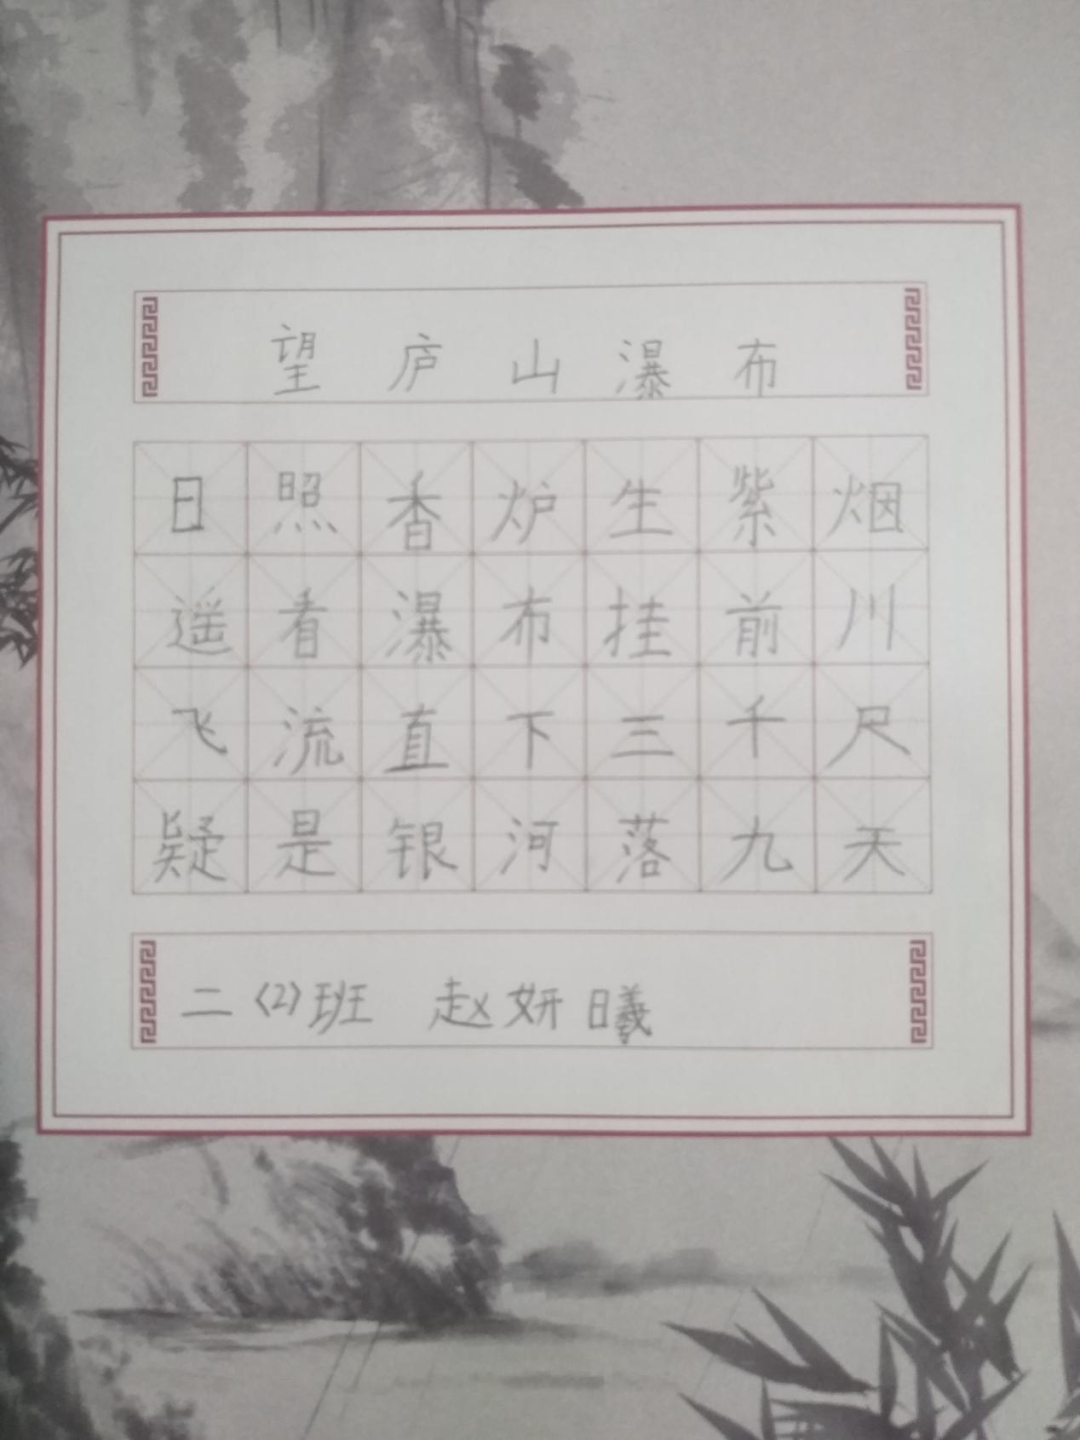 望庐山瀑布
日照香炉生紫烟
遥看瀑布挂前川
飞流直下三千尺
疑是银河落九天
二(2)班 赵妍曦